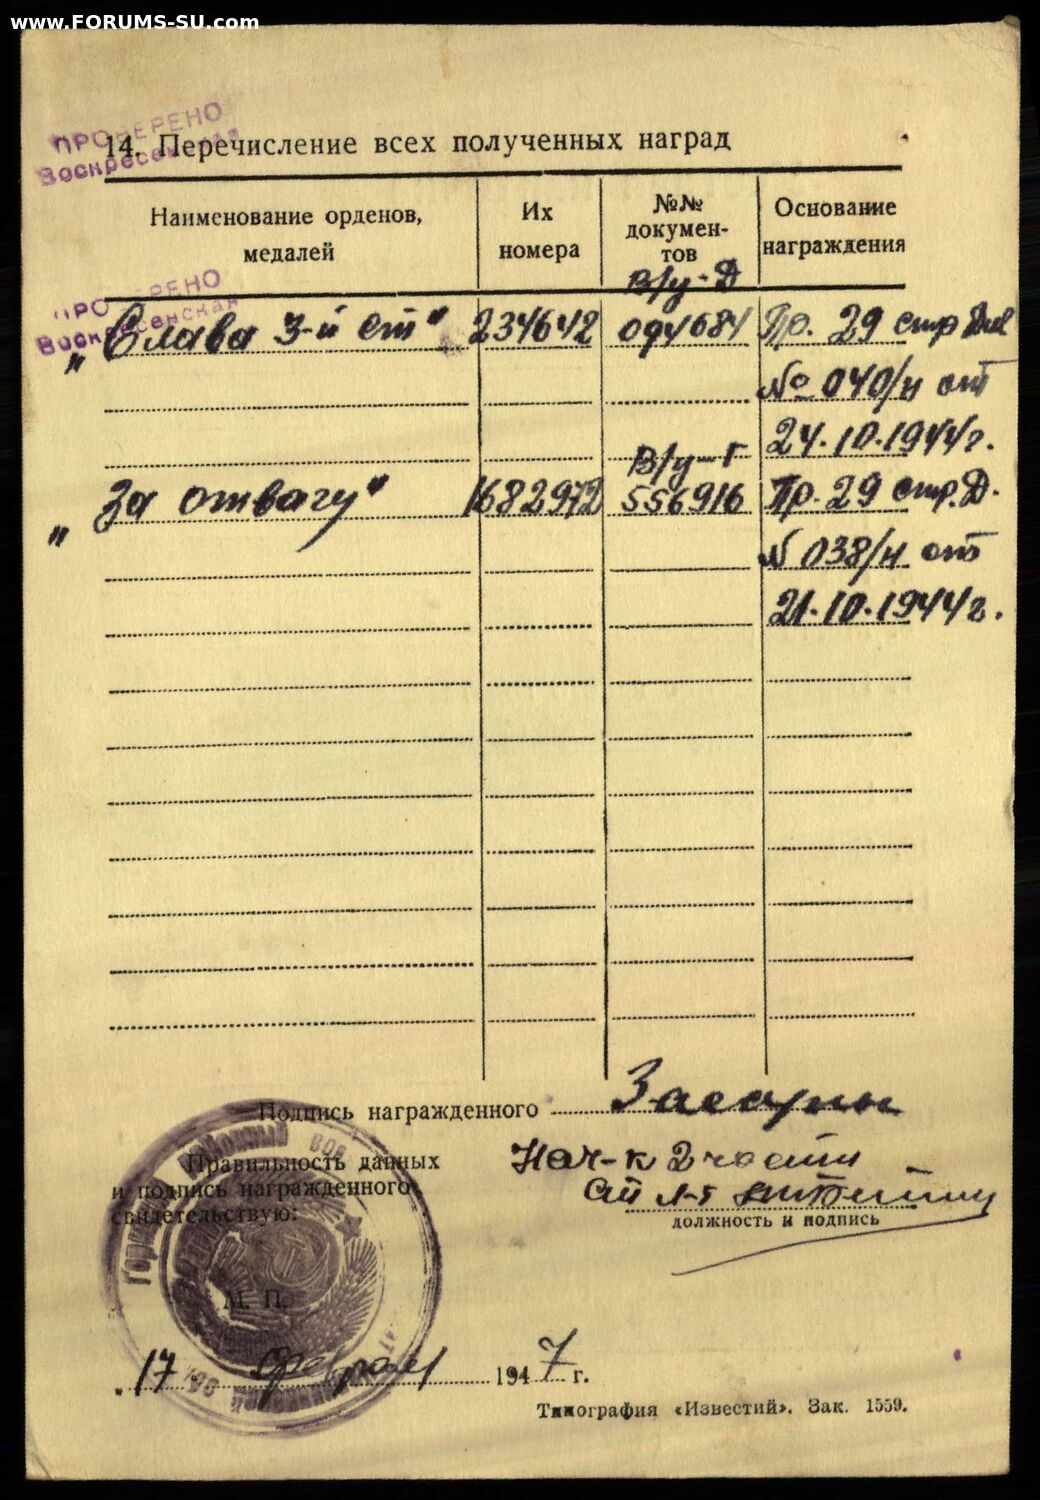 www.FORUMS-SU.com
ПРОВЕРЕНО
14. Перечисление всех полученных наград
Воскресенская
Наименование орденов, медалей
Их номера
№№ документов
Основание награждения
ПРОВЕРЕНО
Воскресенская
В/у-Д
„Слава 3-й ст" 234642 094684 Пр. 29 стр Див
№ 040/н от
24.10.1944г.
В/у-Г
„За отвагу" 1682972 556916 Пр. 29 стр. Д.
N 038/н от
21.10.1944г.
Подпись награжденного
Правильность данных
и подпись награжденного
свидетельствую:
Нач-к 2 части
Ст л-т
должность и подпись
М. П.
17 февраля 1947 г.
Типография «Известий». Зак. 1559.